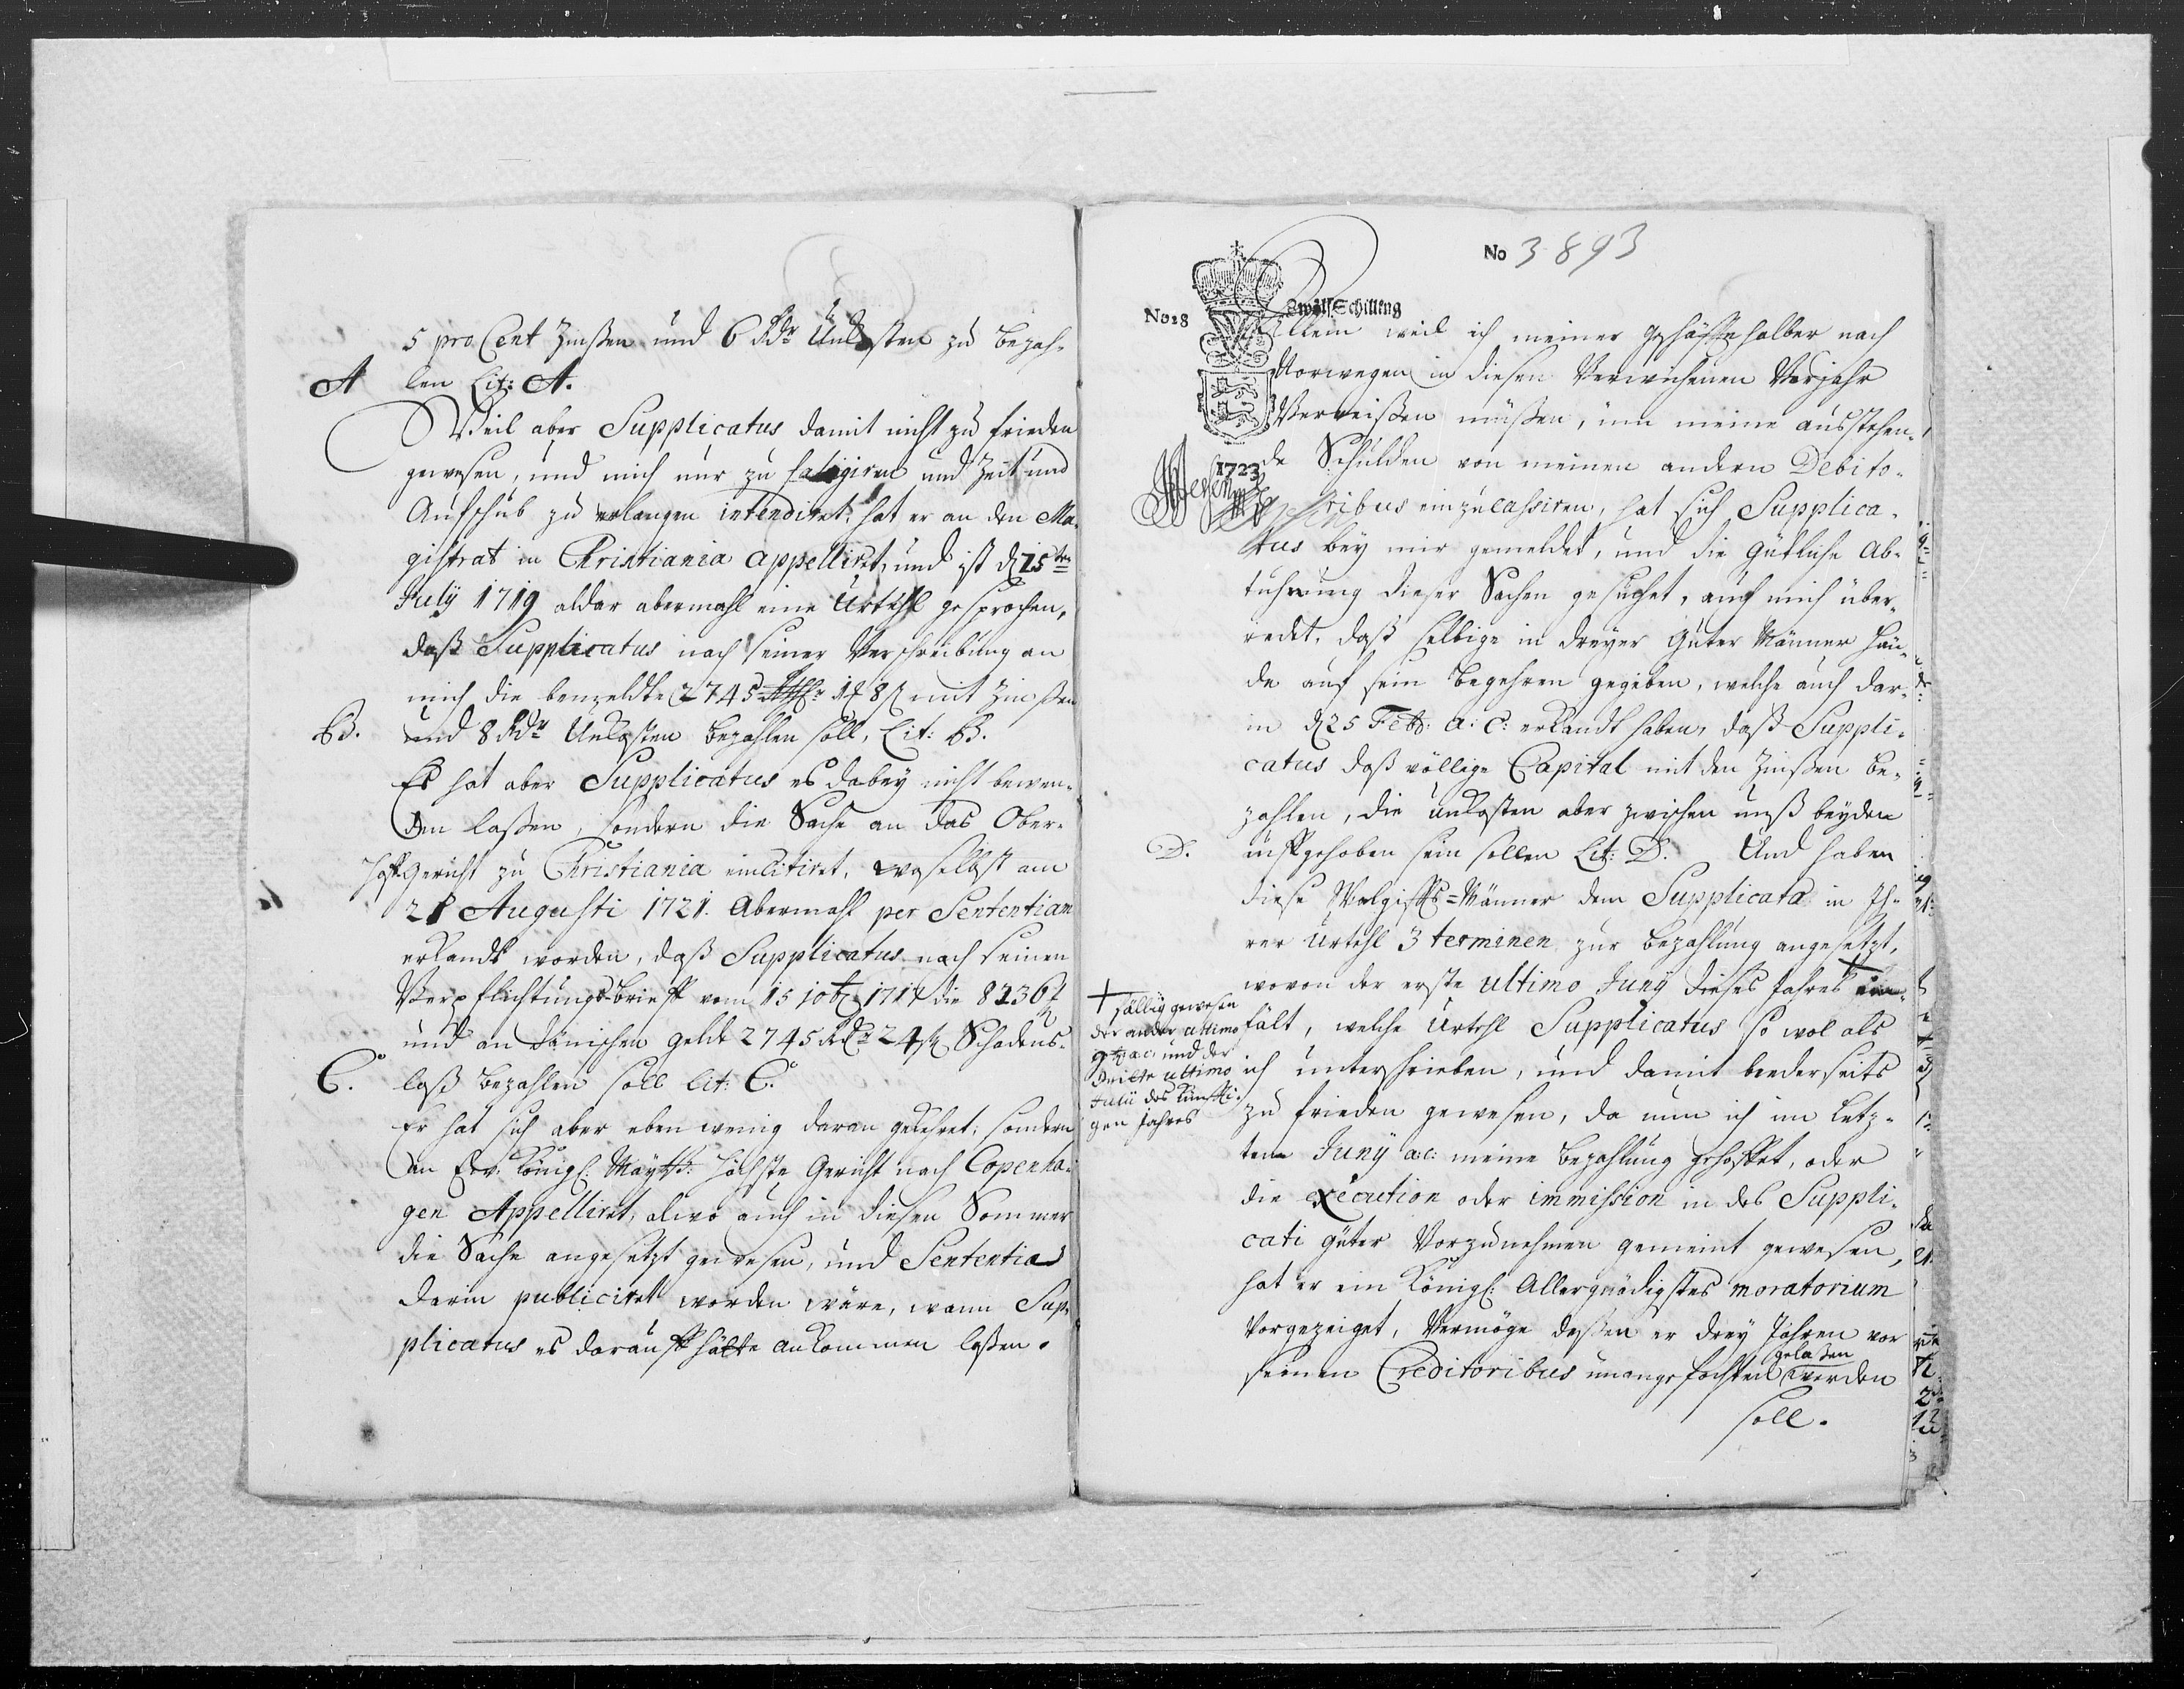 5 pro Cent Zinßen und 6 Rdr Unkosten zu bezah-
A len Lit: A.
Weil aber Supplicatus damit nicht zu frieden
gewesen, und mich nur zu fatigiren und Zeit und
Aufschub zu erlangen intendiret, hat er an den Ma-
gistrat in Christiania appelliret, und ist d 15ten
July 1719 aldar abermahl eine Urtehl gesprochen,
daß Supplicatus nach seiner Verschreibung an
mich die bemeldte 2745 1 8 mit Zinßen
B. und 8 Rdr Unkosten bezahlen soll, Lit: B.
Es hat aber Supplicatus es dabey nicht bewen-
den laßen, sondern die Sache an das Ober-
Hoffgericht zu Christiania incitiret, woselbst am
21 Augusti 1721. Abermahl per Sententiam
erkandt worden, daß Supplicatus nach seinen
Verpflichtungs-brieff vom 15 10br 1717 die 8236
und an dänischen gelde 2745 Rdr 24 ß Schadens-
C. loß bezahlen soll Lit: C.
Er hat sich aber eben wenig daran gekehret, sondern
an Ew. Königl: Maytt: höchste Gericht nach Copenha-
gen Appelliret, alwo auch in diesen Sommer
die Sache angesetzt gewesen, und Sententia
darin publiciret worden wäre, wann Sup-
plicatus es darauff hätte ankommen laßen.
No 3893
No 18 Zwölf Schilling
1723
Allein weil ich meiner geschäffte halber nach
Norwegen in diesen Verwichenen Vorjahr
Verreißen müßen, um meine ausstehen-
de Schulden von meinen andern Debito-
ribus einzucassiren, hat sich Supplica-
tus bey mir gemeldet, und die gütliche Ab-
tuhrung dieser Sachen gesuchet, auch mich über-
redet, daß selbige in dreyer guter Männer Hän-
de auf sein begehren gegeben, welche auch dar-
in d 25 Feb: a: c: erkandt haben, daß Suppli-
catus daß völlige Capital mit den Zinßen be-
zahlen, die unkosten aber zwischen unß beyden
D. auffgehoben sein sollen Lit: D. Und haben
diese Männer dem Supplicato in Ih-
rer Urtehl 3 terminen zur bezahlung angesetzt,
wovon der erste ultimo Juny dieses Jahres +
fält, welche Urtehl Supplicatus so wol als
ich unterschrieben, und damit beederseits
zu frieden gewesen, da nun ich im Letz-
ten Juny a:c: meine bezahlung gehoffet, oder
die execution oder immission in des Suppli-
cati güter Vorzunehmen gemeint gewesen,
hat er ein Königl: Allergnädigstes moratorium
Vorgezeiget, Vermöge deßen er drey Jahren vor
seinen Creditoribus unangefochten gelaßen werden
soll.
+ fällig gewesen
der ander ultimo
a:c: und der
Dritte ultimo
Julii des künffti-
gen Jahres